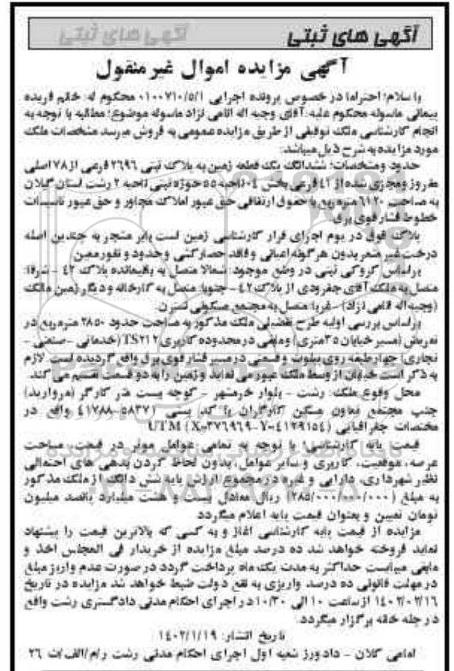 آگهی های ثبتی
آگهی مزایده اموال غیرمنقول
با سلام؛ احتراما در خصوص پرونده اجرایی ۰۱۰۰۷۱۰/۵/۱ محکوم له: خانم فریده
پیمانی ماسوله محکوم علیه: آقای وجیه اله اتامی نژاد ماسوله موضوع: مطالبه با توجه به
انجام کارشناسی ملک توقیفی از طریق مزایده عمومی به فروش میرسد مشخصات ملک
مورد مزایده به شرح ذیل میباشد:
حدود ومشخصات: ششدانگ یک قطعه زمین به پلاک ثبتی ۲۶۹۶ فرعی از ۷۸ اصلی
مفروز ومجزی شده از ۴۱ فرعی بخش ۰۴ ناحیه ۵۵ حوزه ثبتی ناحیه ۲ رشت استان گیلان
به مساحت ۶۱۲۰ مترمربع با حقوق ارتفاقی حق عبور املاک مجاور و حق عبور تاسیسات
خطوط فشار قوی برق
پلاک فوق در یوم اجرای قرار کارشناسی زمین است بایر منجر به چندین اصله
درخت غیر مثمر بدون هرگونه اعیانی و فاقد حصارکشی و حدود و ثغور معین
براساس کروکی ثبتی در وضع موجود: شمالا متصل به باقیمانده پلاک ۴۲ - شرقا:
متصل به ملک آقای جفرودی از پلاک ۴۲ - جنوبا: متصل به کارخانه و دیگر زمین مالک
- غربا: متصل به مجتمع مسکونی نسترن.
براساس بررسی اولیه طرح تفضیلی ملک مذکور به مساحت حدود ۲۸۵۰ مترمربع در
تعریض (مسیر خیابان ۳۵ متری) ومابقی در محدوده کاربری TS۲۱۲ (خدماتی - صنعتی -
تجاری) چهارطبقه روی پیلوت و قسمتی در مسیر فشار قوی برق واقع گردیده است. لازم
به ذکر است خیابان از وسط ملک عبور می نماید و زمین را به دو قسمت تقسیم می کند.
محل وقوع ملک: رشت - بلوار خرمشهر - کوچه بیست متر کارگر (مروارید)
جنب مجتمع تعاون مسکن کارگران با کد پستی (۵۸۳۷-۴۱۷۸۸) واقع در
مختصات جغرافیایی UTM (X=۳۷۶۹۶۹-Y=۴۱۲۹۱۵۴)
قیمت پایه کارشناسی: با توجه به تمامی عوامل موثر در قیمت، مساحت
عرصه، موقعیت، کاربری و سایر عوامل، بدون لحاظ کردن بدهی های احتمالی
نظیر شهرداری، دارایی و غیره در مجموع ارزش پایه شش دانگ از ملک مذکور
به مبلغ (۲۸۵/۰۰۰/۰۰۰/۰۰۰) ریال معادل بیست و هشت میلیارد پانصد میلیون
تومان تعیین و بعنوان قیمت پایه اعلام میگردد
مزایده از قیمت پایه کارشناسی آغاز و به کسی که بالاترین قیمت را پیشنهاد
نماید فروخته خواهد شد ده درصد مبلغ مزایده از خریدار فی المجلس اخذ و
مابقی میبایست حداکثر به مدت یک ماه پرداخت گردد در صورت عدم واریز مبلغ
در مهلت قانونی ده درصد واریزی به نفع دولت ضبط خواهد شد مزایده در تاریخ
۱۴۰۲/۰۲/۱۶ از ساعت ۱۰ الی ۱۰/۳۰ در اجرای احکام مدنی دادگستری رشت واقع
در جلسه خانه برگزار میگردد.
تاریخ انتشار: ۱۴۰۲/۱/۱۹
امامی گلان - دادورز شعبه اول اجرای احکام مدنی رشت ر/م/الف/ث ۲۶